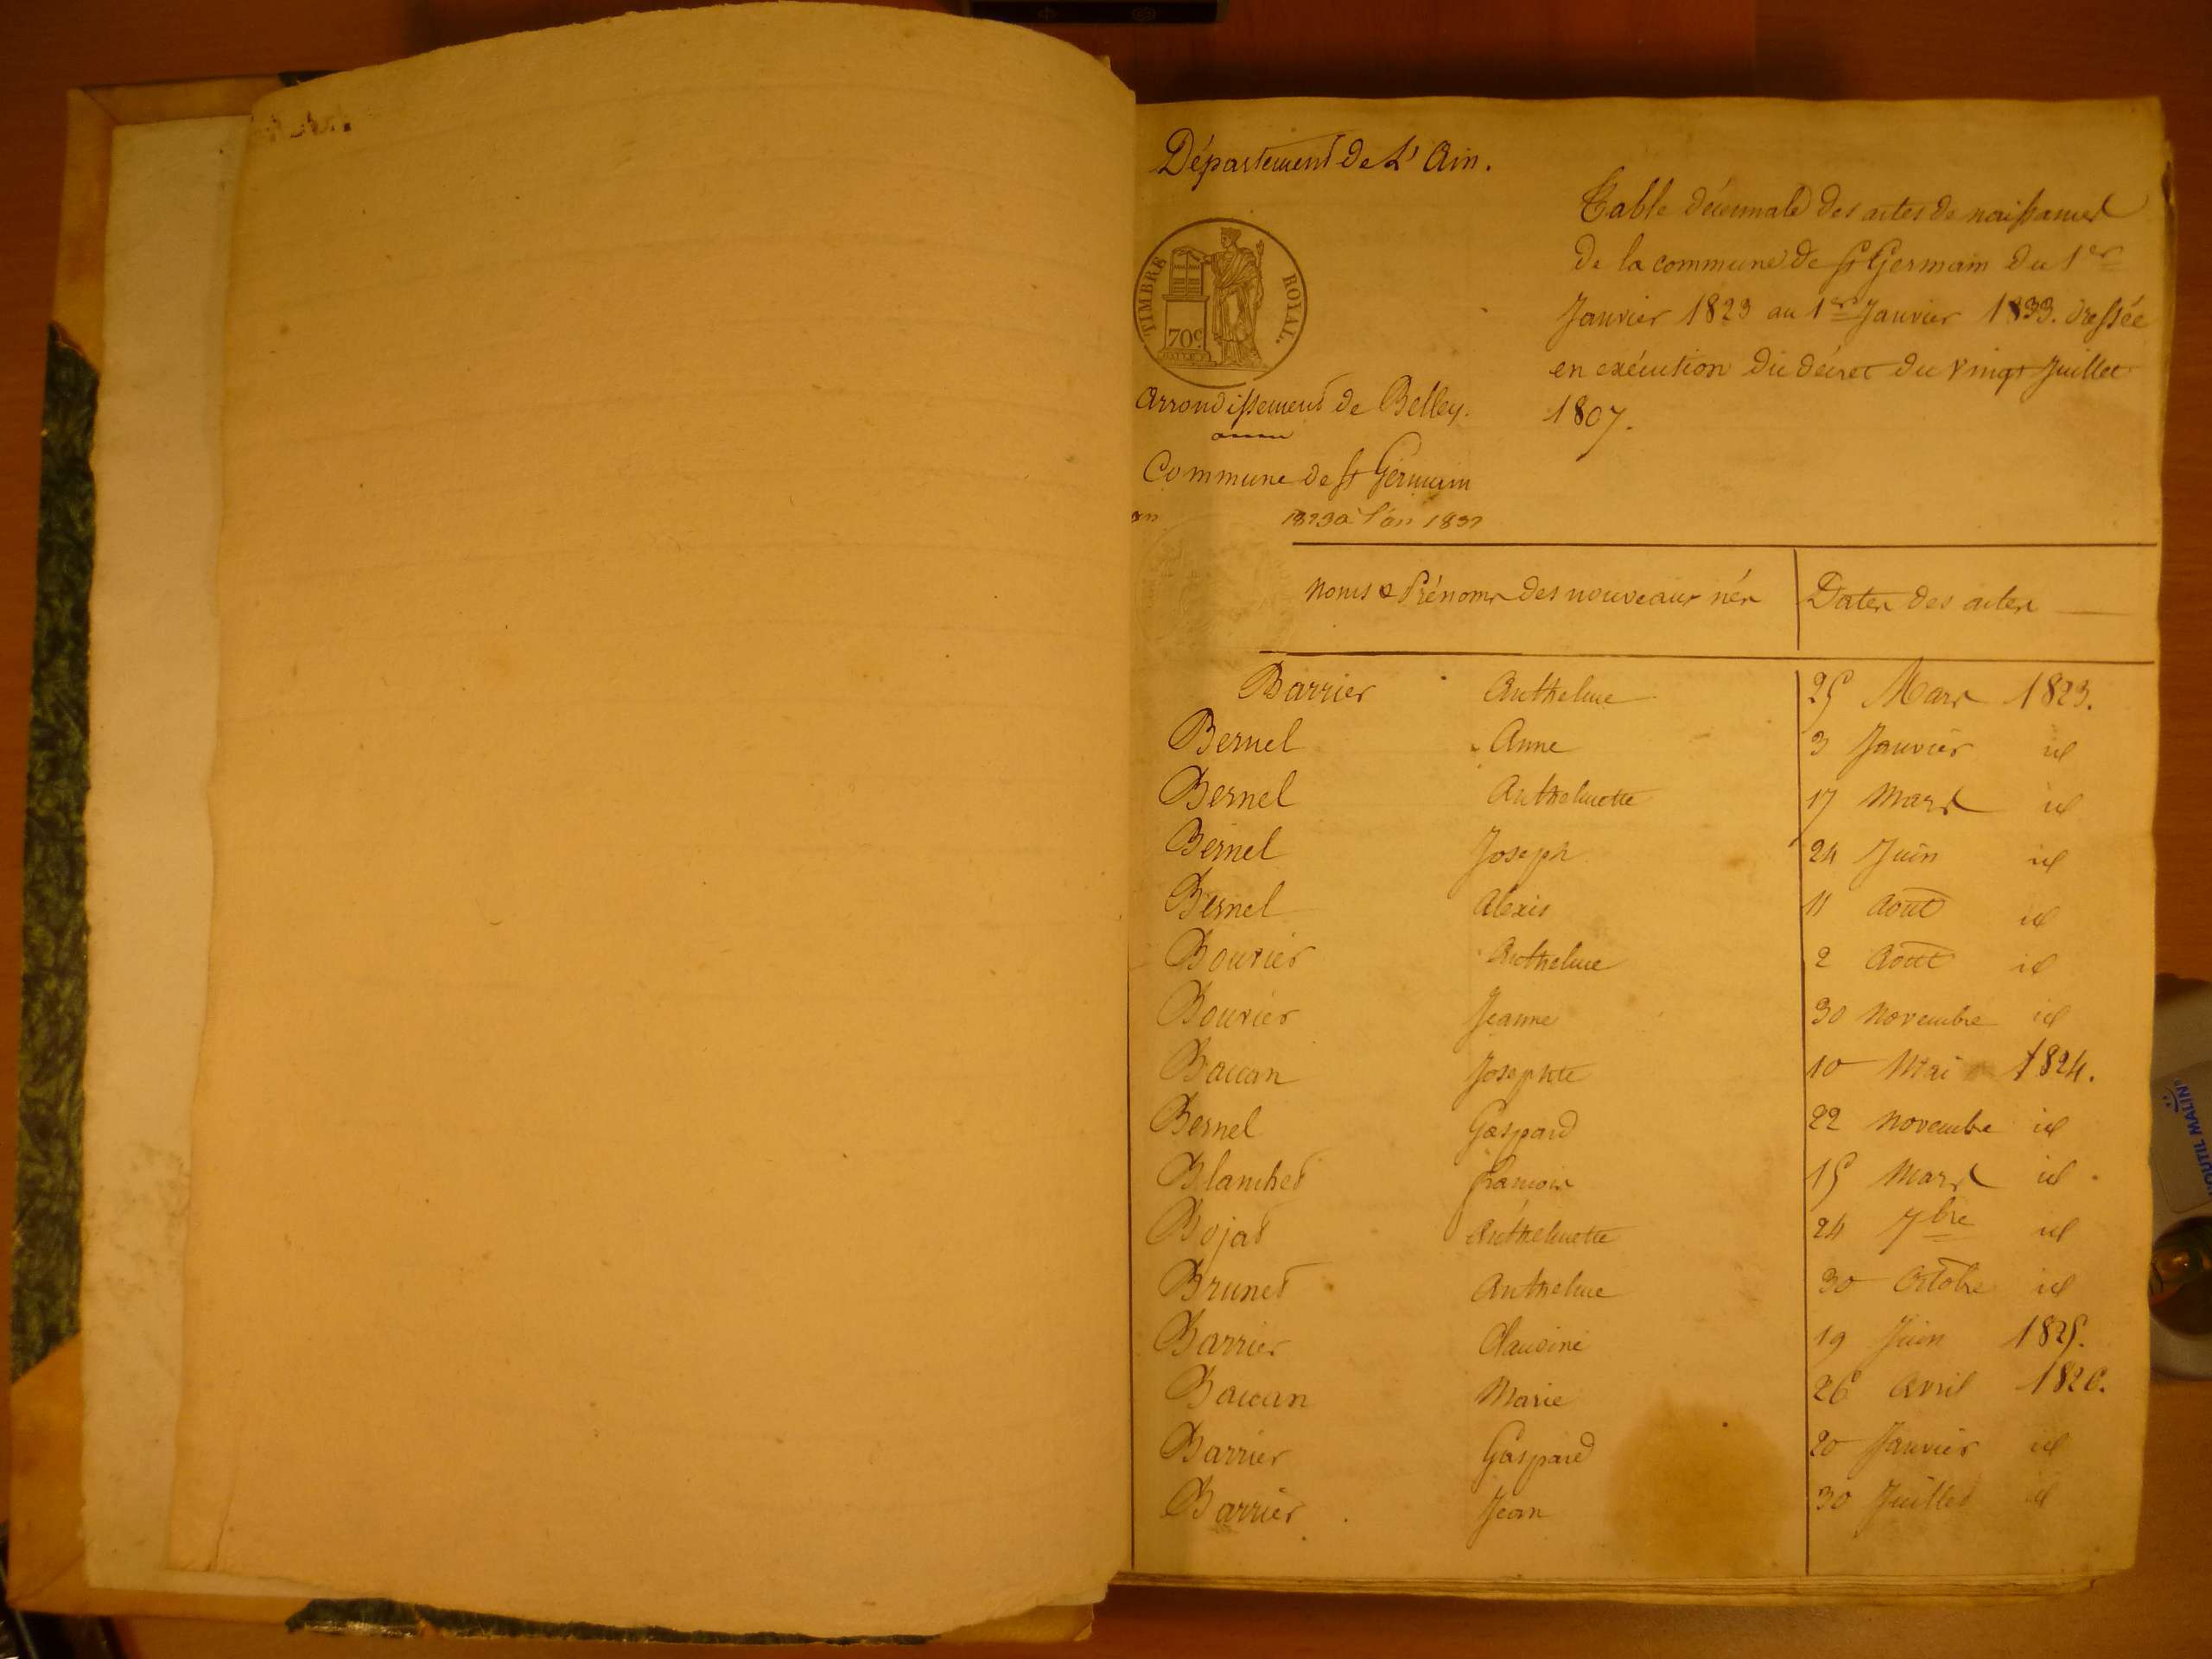 Département de L'Ain.
TIMBRE ROYAL.
70c
Arrondissement de Belley.
Commune de St Germain
an 1823 à l'an 1832
Table décennale des actes de naissances
de la commune de St Germain du 1er
Janvier 1823 au 1er Janvier 1833. dressée
en exécution du décret du vingt Juillet
1807.
Noms & Prénoms des nouveaux nés Dates des actes
Barrier Anthelme 25 Mars 1823.
Bernel Anne 3 Janvier id
Bernel Anthelmette 17 Mars id
Bernel Joseph 24 Juin id
Bernel Alexis 11 Août id
Bouvier Anthelme 2 Août id
Bouvier Jeanne 30 Novembre id
Baccan Josephte 10 Mai 1824.
Bernel Gaspard 22 Novembre id
Blanchet François 15 Mars id
Bojat Anthelmette 24 7bre id
Brunet Anthelme 30 Octobre id
Barrier Claudine 19 Juin 1825.
Baccan Marie 26 Avril 1826.
Barrier Gaspard 20 Janvier id
Barrier Jean 30 Juillet id
L'OUTIL MALIN